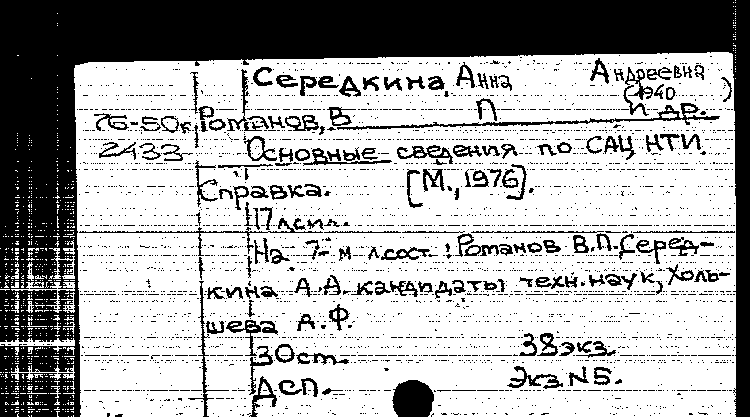 Середкина, Анна Андреевна
(1940 )
76-50к Романов, В П и др.
2433 Основные сведения по САЦ НТИ.
Справка. [М., 1976].
17 л.
На 7-м л.сост.: Романов В.П., Серед-
кина А.А. кандидаты техн.наук, Холь-
шева А.Ф.
30ст. 38экз.
ДСП. Экз.N5.